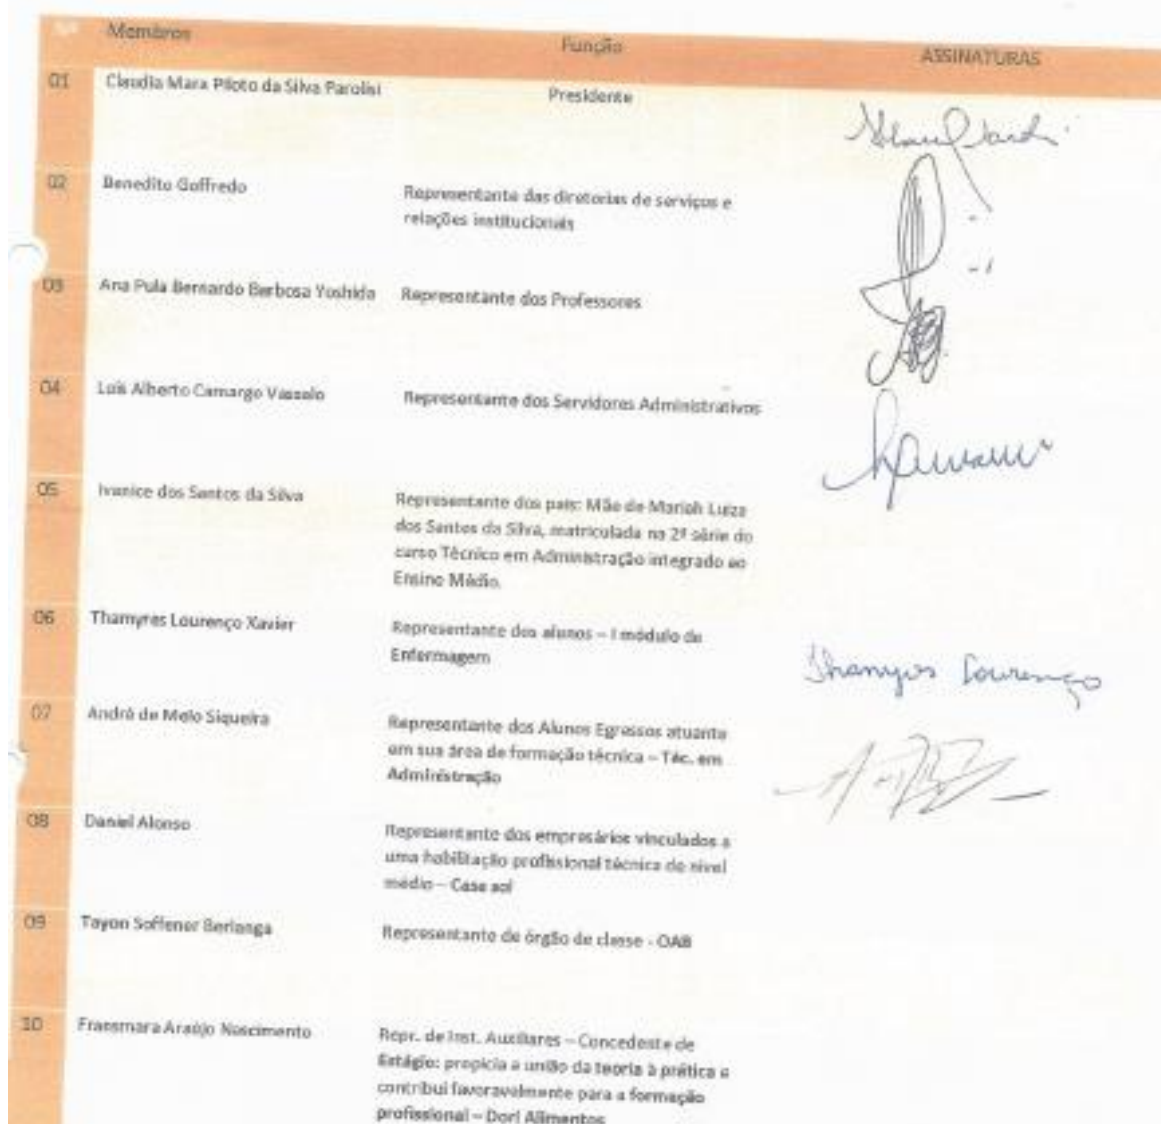 Nº Membros Função ASSINATURAS
01 Claudia Mara Piloto da Silva Parolisi Presidente
02 Benedito Goffredo Representante das diretorias de serviços e
relações institucionais
03 Ana Pula Bernardo Barbosa Yoshida Representante dos Professores
04 Luis Alberto Camargo Vassolo Representante dos Servidores Administrativos
05 Ivanice dos Santos da Silva Representante dos pais: Mãe de Mariah Luiza
dos Santos da Silva, matriculada na 2ª série do
curso Técnico em Administração integrado ao
Ensino Médio.
06 Thamyres Lourenço Xavier Representante dos alunos – I módulo de
Enfermagem
Thamyres Lourenço
07 André de Melo Siqueira Representante dos Alunos Egressos atuante
em sua área de formação técnica – Téc. em
Administração
08 Daniel Alonso Representante dos empresários vinculados a
uma habilitação profissional técnica de nível
médio – Casa sol
09 Tayon Soffener Berlanga Representante de órgão de classe - OAB
10 Araújo Nascimento Repr. de Inst. Auxiliares – Concedente de
Estágio: propicia a união da teoria à prática e
contribui favoravelmente para a formação
profissional – Dori Alimentos